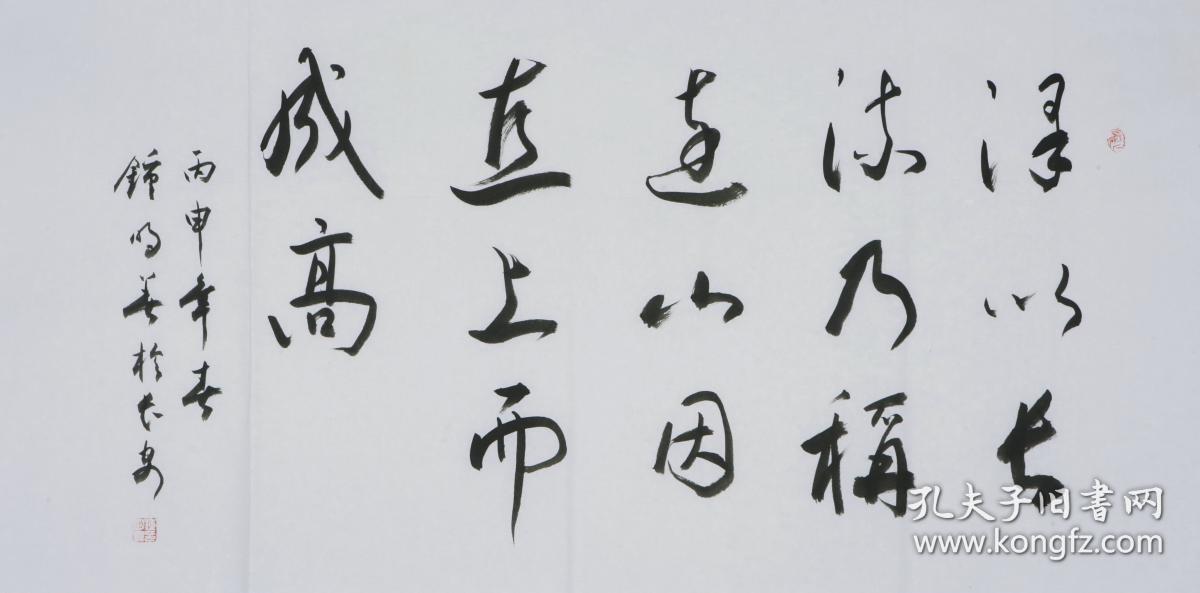 泽以长
流乃稱
远山因
直上而
成高
丙申年春
锦鸣善於长安
孔夫子旧书网
www.kongfz.com